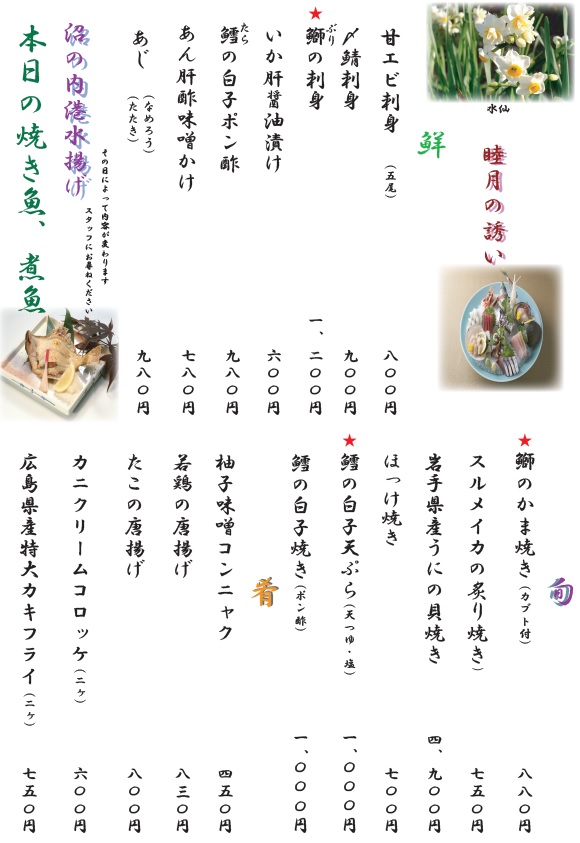 水仙
睦月の誘い
鮮
甘エビ刺身（五尾） 八〇〇円
〆鯖刺身 九〇〇円
★鰤の刺身 一、二〇〇円
ぶり
いか肝醤油漬け 六〇〇円
鱈の白子ポン酢 九八〇円
たら
あん肝酢味噌かけ 七八〇円
あじ（なめろう）（たたき） 九八〇円
沼の内港水揚げ
その日によって内容が変わります
スタッフにお尋ねください
本日の焼き魚、煮魚
旬
★鰤のかま焼き（カブト付） 八八〇円
スルメイカの炙り焼き） 七五〇円
岩手県産うにの貝焼き 四、九〇〇円
ほっけ焼き 七〇〇円
★鱈の白子天ぷら（天つゆ・塩） 一、〇〇〇円
鱈の白子焼き（ポン酢） 一、〇〇〇円
肴
柚子味噌コンニャク 四五〇円
若鶏の唐揚げ 八三〇円
たこの唐揚げ 八〇〇円
カニクリームコロッケ（二ヶ） 六〇〇円
広島県産特大カキフライ（二ヶ） 七五〇円